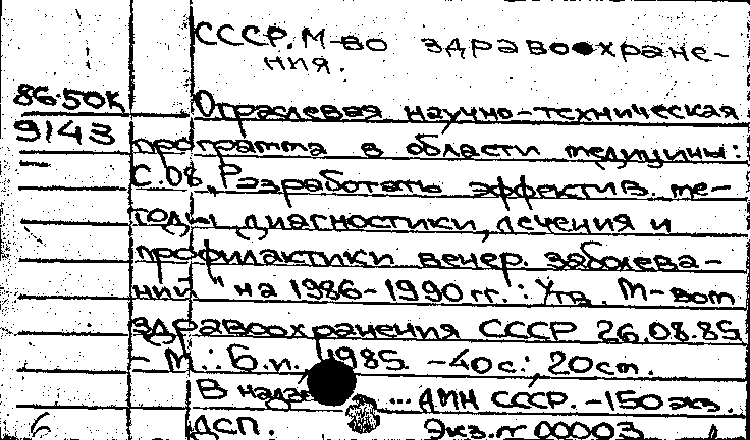 СССР. М-во здравоохране-
ния.
86-50К
Отраслевая научно-техническая
9143
программа в области медицины:
С.08 "Разработать эффектив. ме-
тоды диагностики, лечения и
профилактики венер. заболева-
ний" на 1986-1990 гг.: Утв. М-вом
здравоохранения СССР 26.08.85
- М.: Б.и., 1985. - 40 с.; 20 см.
В ... АМН СССР. - 150 экз.
ДСП. Экз. № 00003
б